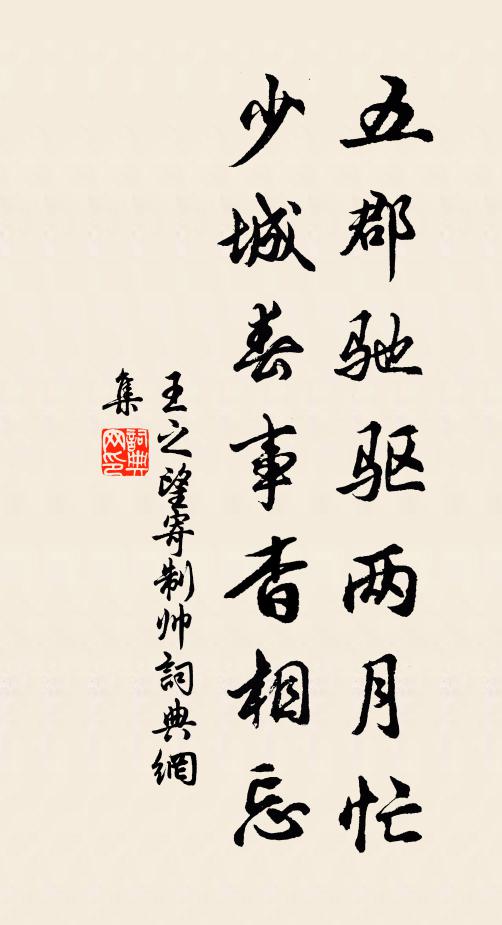 五郡驰驱两月忙
少城春事杳相忘
王之望寄制帅词典網
集
詞典网印